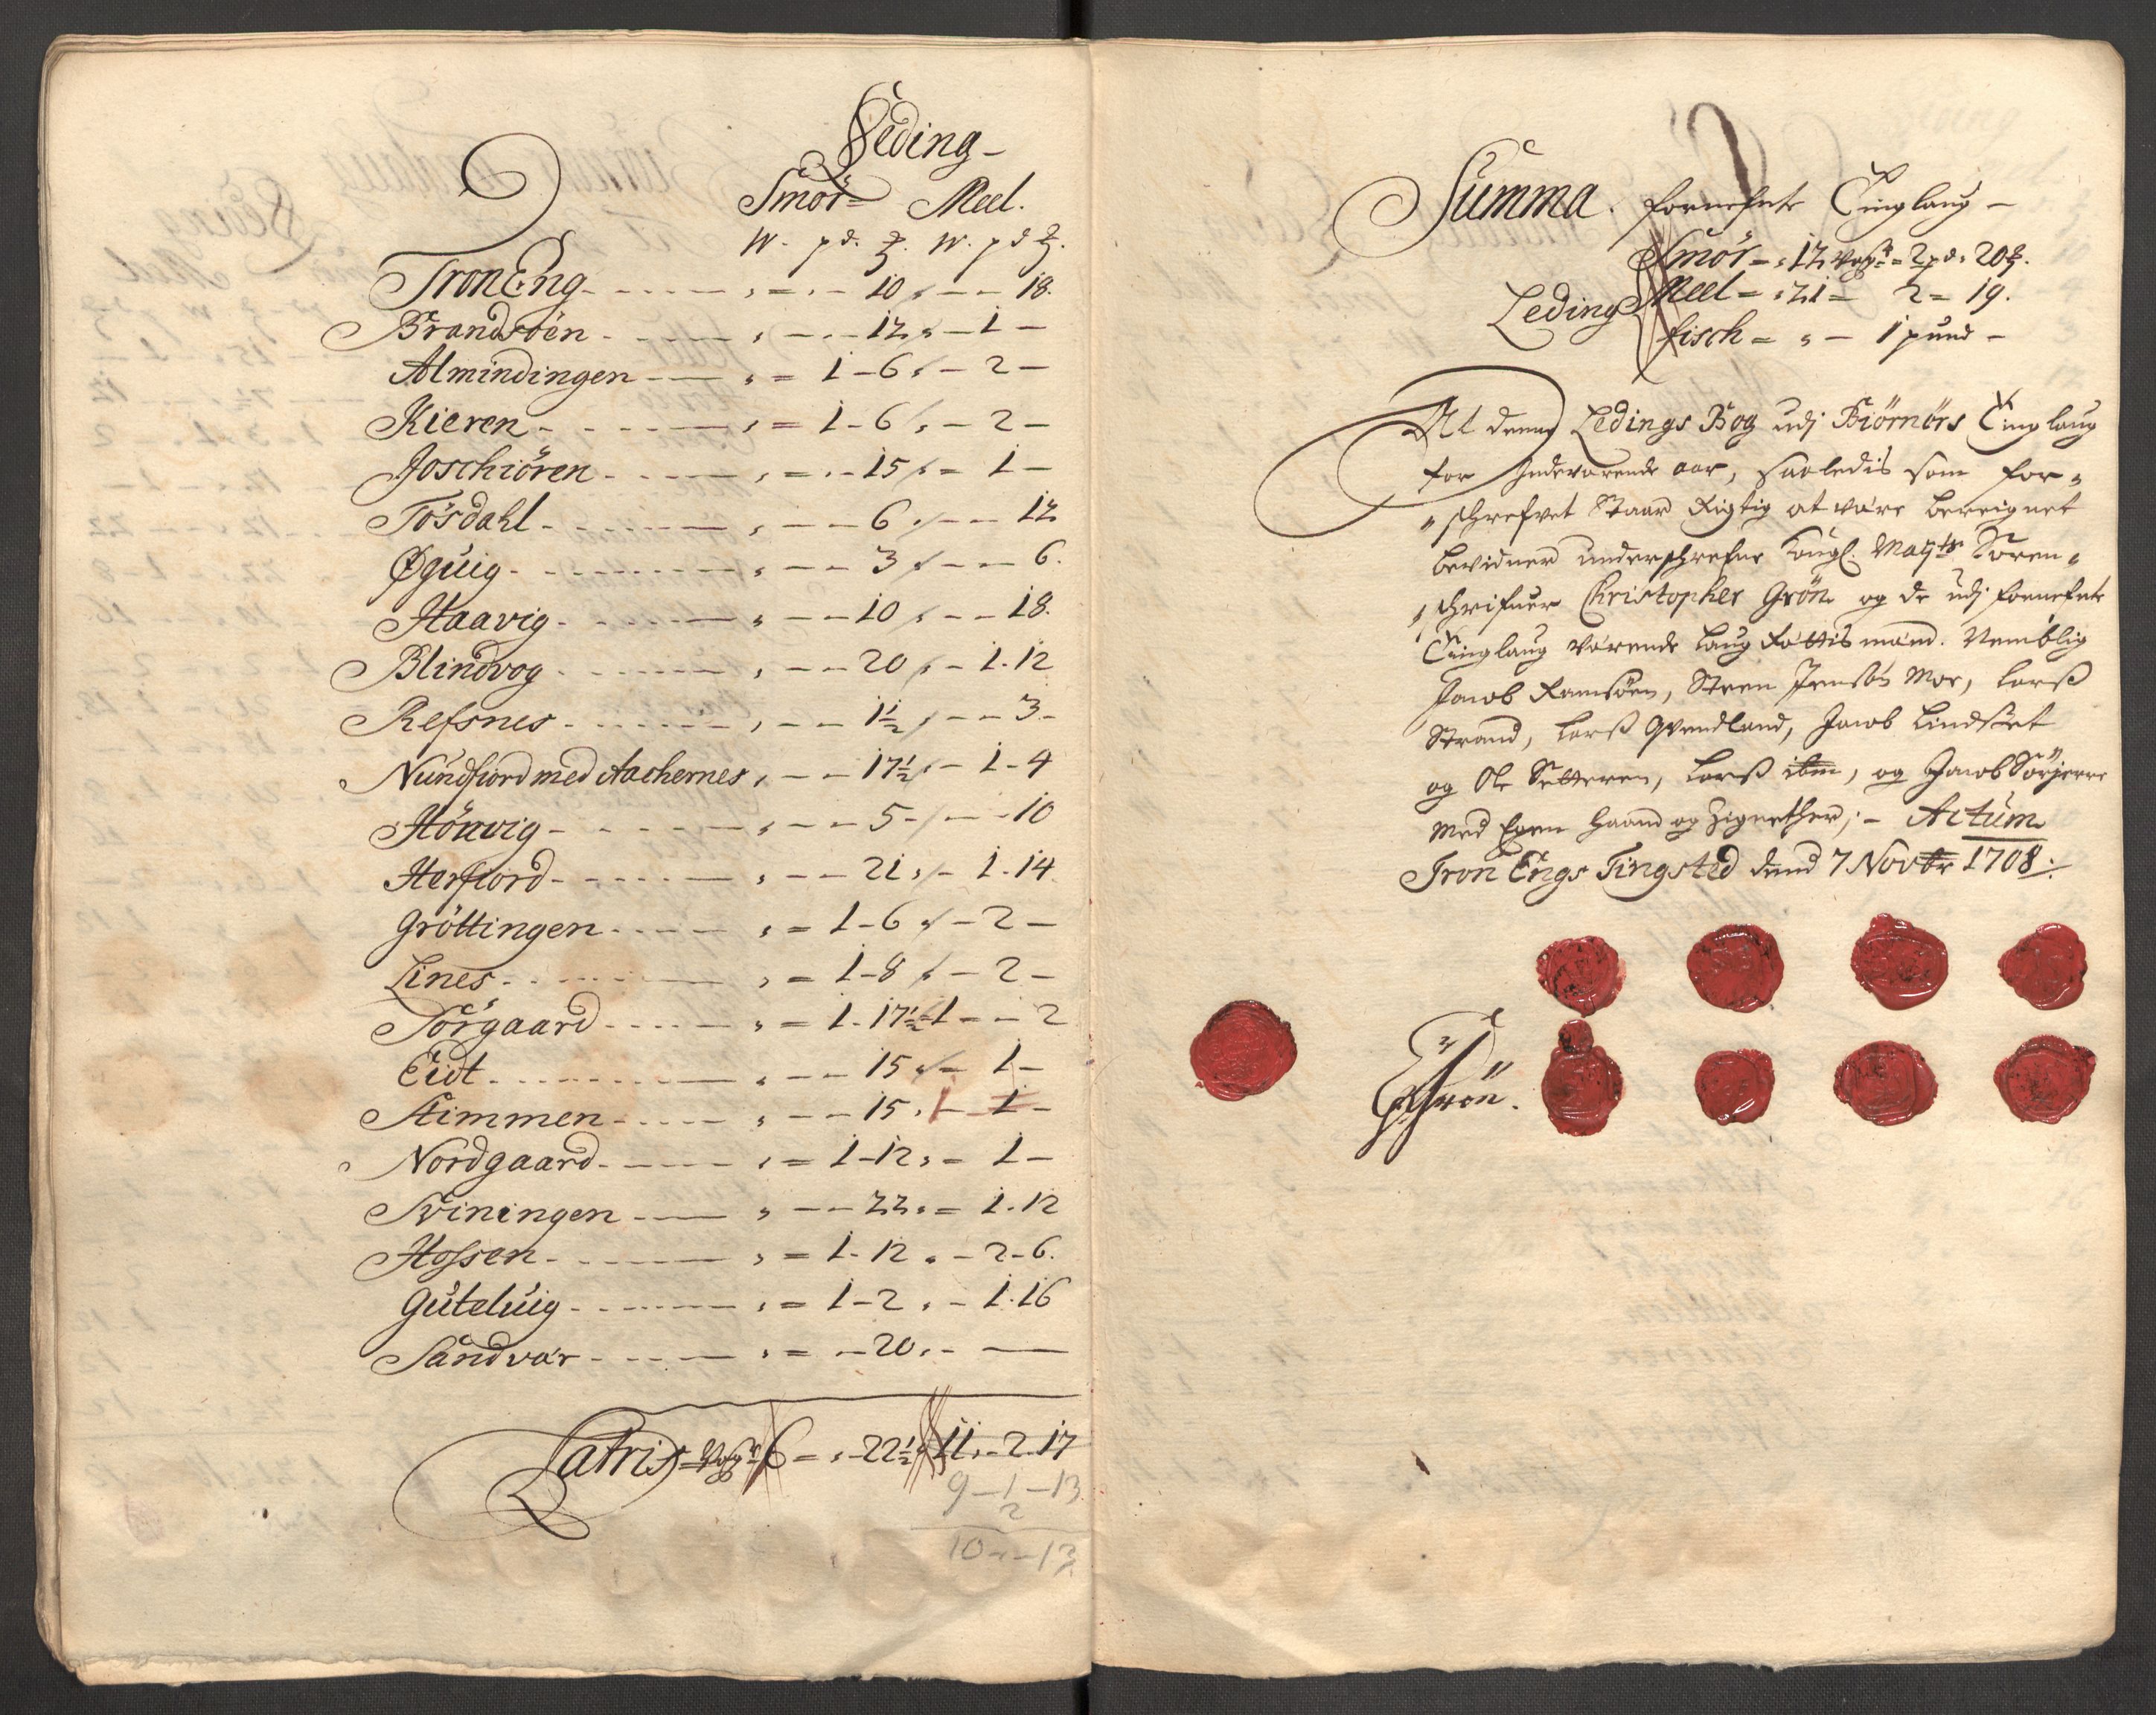 Leding -
Smör= Meel.
W. pd. ℔. W. pd ℔.
TronEng - - - - - - - „ = „ - 10 „ - - - 18.
Brandsöen - - - - - „ - - - 12 „ - 1 -
Almindingen - - - „ = 1 - 6 „ - 2 -
Kieren - - - - - - „ = 1 - 6 „ - 2 -
Joschiören - - - - - „ = - - 15 „ = 1 -
Tösdahl - - - - - - „ - - - 6 „ - - - 12
Øguig - - - - - - - „ - - - 3 „ - - - 6.
Haavig - - - - - - „ - - - 10 „ - - - 18.
Blindvog - - - - - - „ - - - 20 „ - 1.12
Refsnes - - - - - - „ - - - 1½ „ - - - 3 -
Nundfiord med Aachernes „ - - - 17½ „ - 1 - 4
Hönvig - - - - - - „ - - - 5 - „ - - - 10
Herfiord - - - - - - „ - - - 21 „ - 1.14
Gröttingen - - - - - „ = 1 - 6 „ - 2 -
Lines - - - - - - - „ = 1 - 8 „ - 2 -
Sörgaard - - - - - „ = 1 - 17½ = 1 - - - 2
Eidt - - - - - - - „ - - - 15 „ - 1 -
Stimmen - - - - - „ - - - 15 „ - 1 -
Nordgaard - - - - - „ = 1 - 12 „ = 1 -
Sviningen - - - - „ - - - 22 „ = 1.12
Hossen - - - - - - „ = 1 - 12 „ - 2 - 6.
Guteluig - - - - - - „ = 1 - 2 „ - 1.16
Sandvær - - - - - „ = - - 20 „ - -
Latris - Woger 6 = „ - 22½ 11 „ - 2 - 17
9 - 1/2 - 13
10 - - 13
Summa. fornefnte Tinglaug -
Smör = „ 12 Woger = 2 pd. 20 ℔.
Leding Meel = „ 21 = 2 = 19.
fisch = „ - 1 pund -
At denne Ledings Bog udj Biörnörs Tinglaug
for Indeværende aar, saaledis som for„
„schrefvet Staar Rigtig at være bereignet
bevidner underschrefne Kongl. Maÿts Soren„
„schrifuer Christopher Grön og de udj fornefnte
Tinglaug værende Laug Rættismænd. Nemblig
Jacob Ramsöen, Steen Jensön Moe, Larss
Strand, Larss Qvendland, Jacob Lindset
og Ole Setteren, Larss ibm, og Jacob Sörjerre
med Egen Haand og Zignether; - Actum
Tron Engs Tingsted dend 7 Novbr 1708.
CGrön.